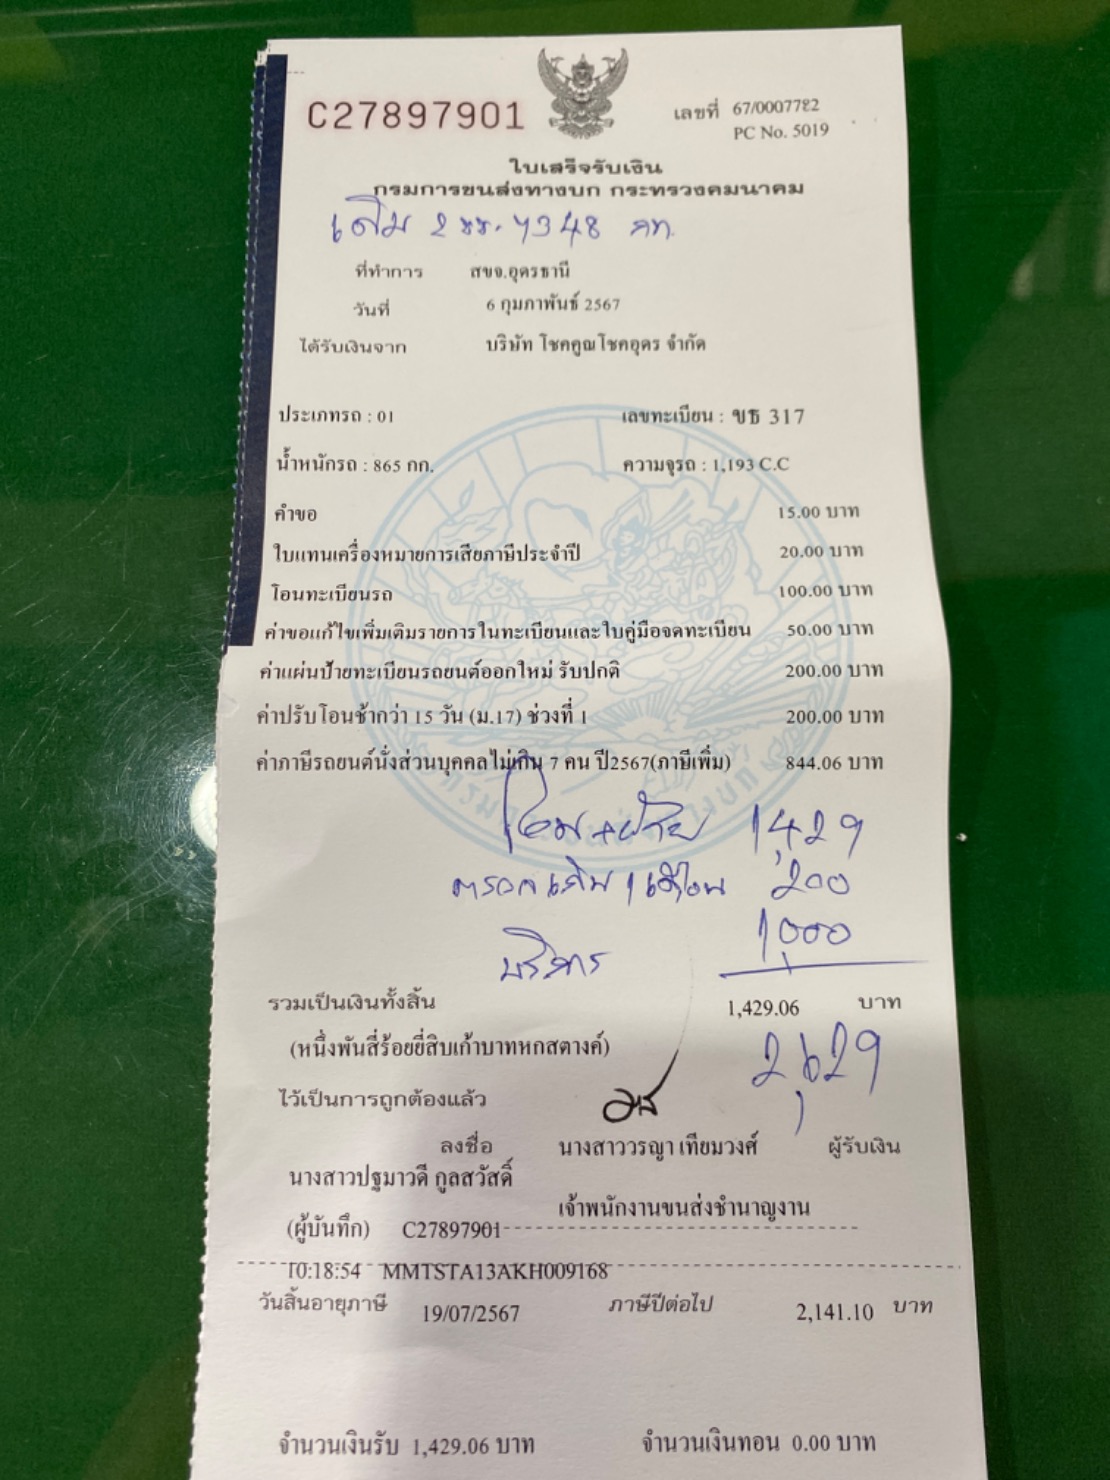 C27897901
เลขที่ 67/0007782
PC No. 5019
ใบเสร็จรับเงิน
กรมการขนส่งทางบก กระทรวงคมนาคม
เดิม 2 ขช. 7348 กท.
ที่ทำการ สขจ.อุดรธานี
วันที่ 6 กุมภาพันธ์ 2567
ได้รับเงินจาก บริษัท โชคคูณโชคอุดร จำกัด
ประเภทรถ : 01 เลขทะเบียน : ขธ 317
น้ำหนักรถ : 865 กก. ความจุรถ : 1,193 C.C
คำขอ 15.00 บาท
ใบแทนเครื่องหมายการเสียภาษีประจำปี 20.00 บาท
โอนทะเบียนรถ 100.00 บาท
ค่าขอแก้ไขเพิ่มเติมรายการในทะเบียนและใบคู่มือจดทะเบียน 50.00 บาท
ค่าแผ่นป้ายทะเบียนรถยนต์ออกใหม่ รับปกติ 200.00 บาท
ค่าปรับโอนช้ากว่า 15 วัน (ม.17) ช่วงที่ 1 200.00 บาท
ค่าภาษีรถยนต์นั่งส่วนบุคคลไม่เกิน 7 คน ปี2567(ภาษีเพิ่ม) 844.06 บาท
โอน+ย้าย 1,429
200
บริการ 1,000
รวมเป็นเงินทั้งสิ้น 1,429.06 บาท
(หนึ่งพันสี่ร้อยยี่สิบเก้าบาทหกสตางค์)
2,629
ไว้เป็นการถูกต้องแล้ว
ลงชื่อ นางสาววรญา เทียมวงศ์ ผู้รับเงิน
นางสาวปฐมาวดี กูลสวัสดิ์
เจ้าพนักงานขนส่งชำนาญงาน
(ผู้บันทึก) C27897901
10:18:54 MMTSTA13AKH009168
วันสิ้นอายุภาษี 19/07/2567 ภาษีปีต่อไป 2,141.10 บาท
จำนวนเงินรับ 1,429.06 บาท จำนวนเงินทอน 0.00 บาท